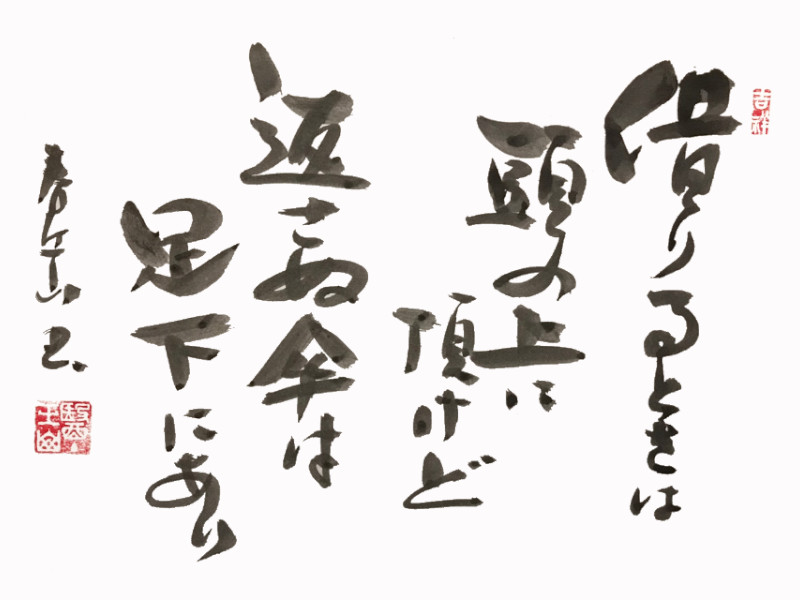 借りるときは
頭の上に
頂けど
返さぬ傘は
足下にあり
吉祥